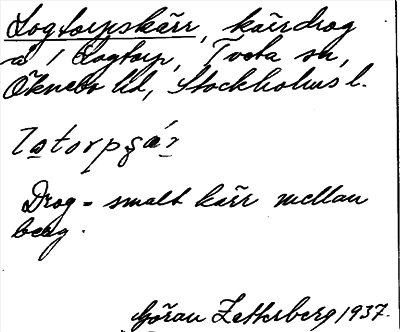 Logtorpskärr, kärrdrog
å / Logtorp, Tveta sn,
Öknebo hd, Stockholms l.
Drog = smalt kärr mellan
berg.
Göran Zetterberg 1937.